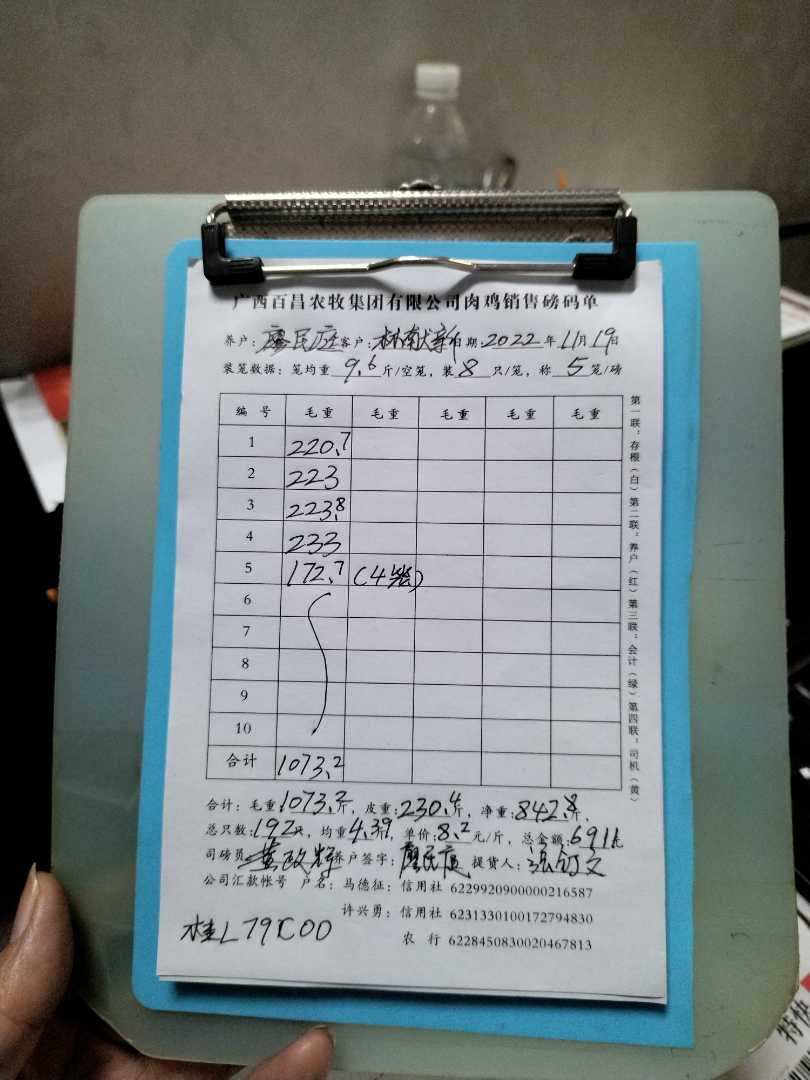 广西百昌农牧集团有限公司肉鸡销售磅码单
养户:廖民庭客户:林献新日期:2022年11月19日
装笼数据:笼均重9.6斤/空笼,装8只/笼,称5笼/磅
编 号 毛 重 毛 重 毛 重 毛 重 毛 重
1 220.7
2 223
3 223.8
4 233
5 172.7 (4笼)
6
7
8
9
10
合计 1073.2
合计:毛重1073.2斤,皮重:230.4斤,净重:842.8斤,
总只数:192只,均重4.39斤,单价:8.2元/斤,总金额:6911元
司磅员 黄政辉养户签字:廖民庭提货人:
公司汇款帐号 户名:马德征:信用社 6229920900000216587
许兴勇:信用社 6231330100172794830
农 行 6228450830020467813
桂L79C00
第一联:存根(白)第二联:养户(红)第三联:会计(绿)第四联:司机(黄)
特快